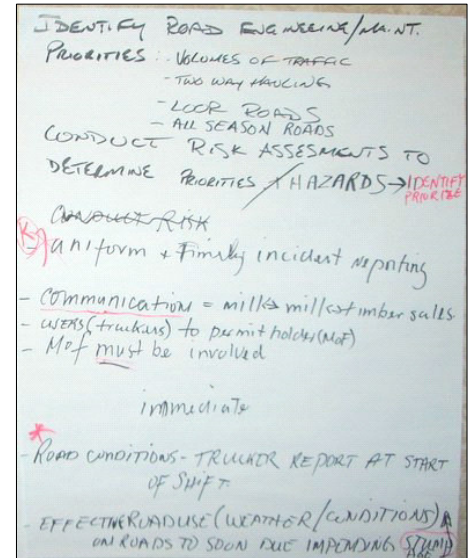 IDENTIFY ROAD ENGINEERING/MAINT.
PRIORITIES: VOLUMES OF TRAFFIC
- TWO WAY HAULING
- LOOR ROADS
- ALL SEASON ROADS
CONDUCT RISK ASSESMENTS TO
DETERMINE PRIORITIES / HAZARDS → IDENTIFY
PRIORIZE
CONDUCT RISK
uniform + Timely incident reporting
- communication = mill ↔ mill ↔ timber sales
- users (truckers) to permit holder (MoF)
- MoF must be involved
immediate
* - ROAD CONDITIONS - TRUCKER REPORT AT START
OF SHIFT
- EFFECTIVE ROAD USE (WEATHER/CONDITIONS)
ON ROADS TO SOON DUE IMPENDING STUMP